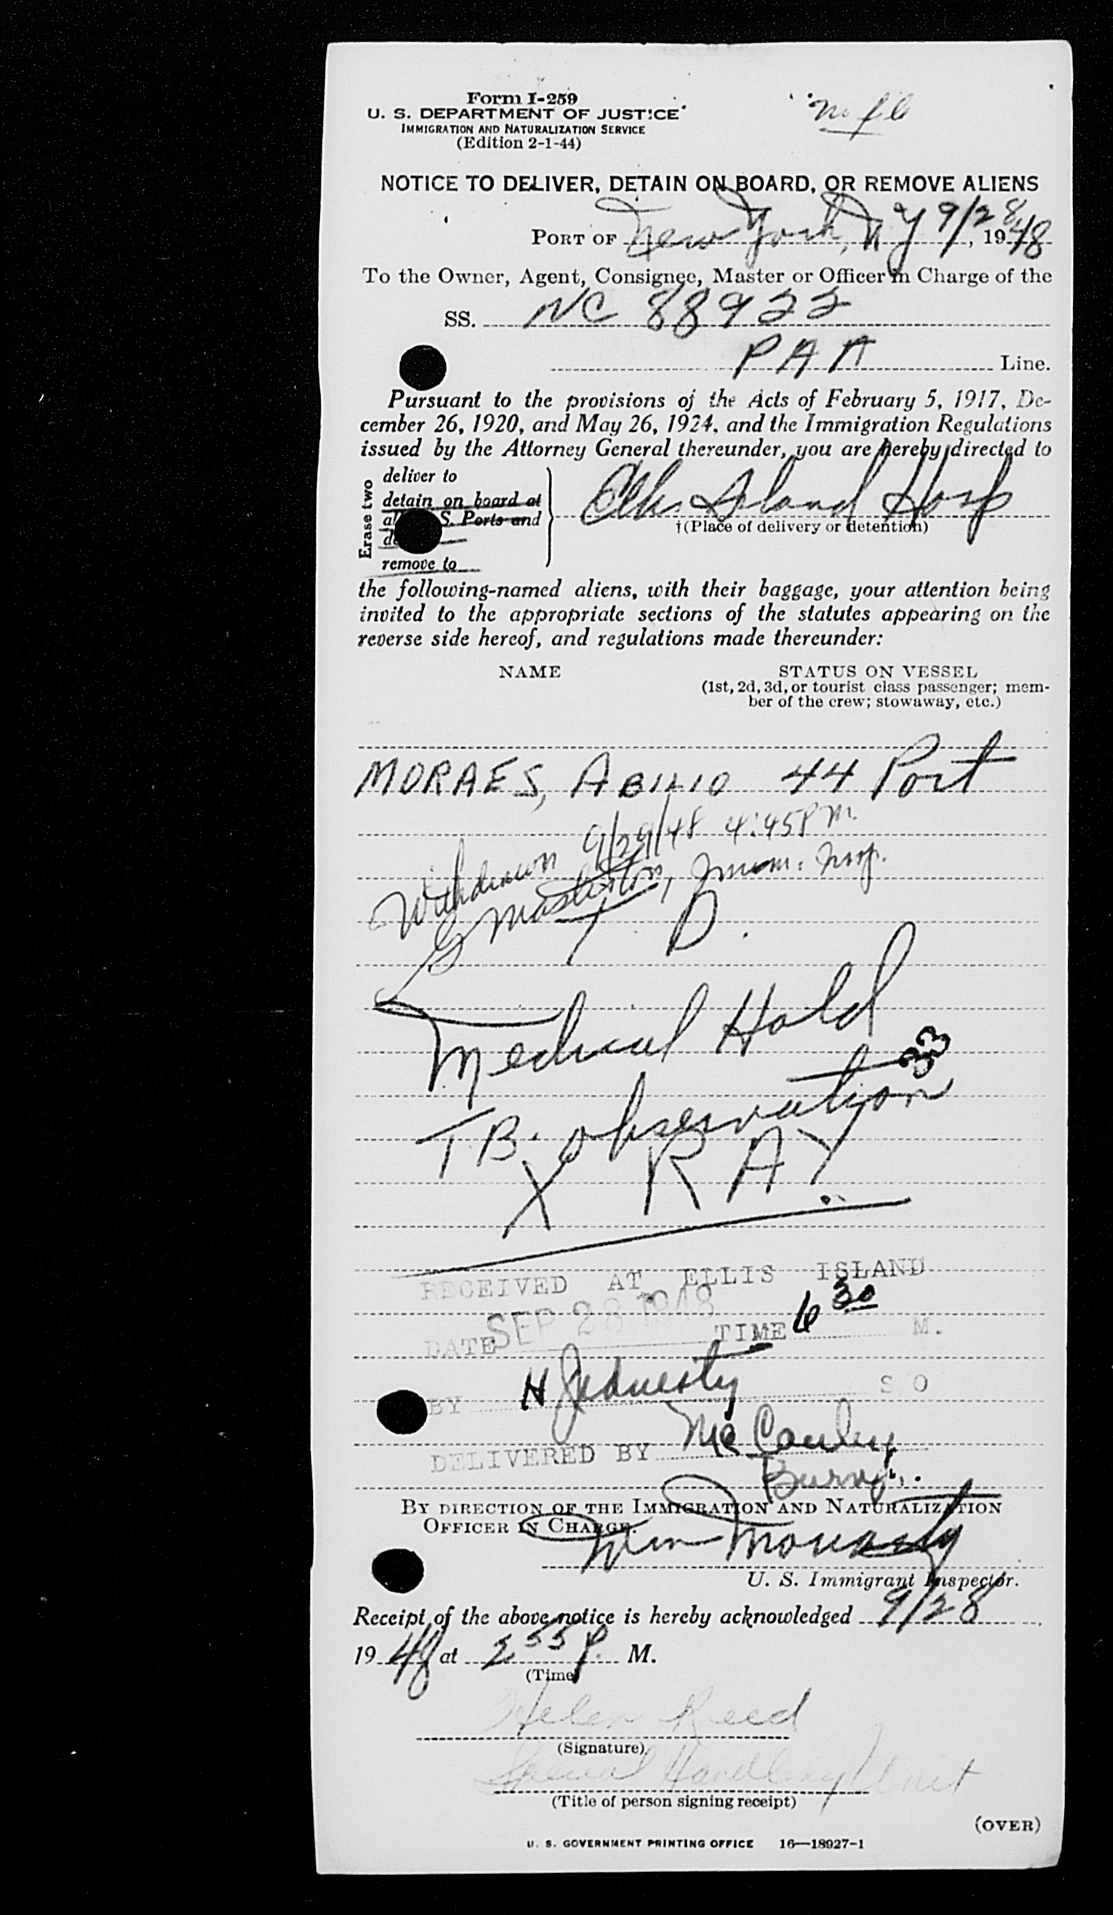 Form I-259
U. S. DEPARTMENT OF JUSTICE
IMMIGRATION AND NATURALIZATION SERVICE
(Edition 2-1-44)
NOTICE TO DELIVER, DETAIN ON BOARD, OR REMOVE ALIENS
PORT OF New York, N Y 9/28, 1948
To the Owner, Agent, Consignee, Master or Officer in Charge of the
SS. NC 88922
PAA Line.
Pursuant to the provisions of the Acts of February 5, 1917, De-
cember 26, 1920, and May 26, 1924, and the Immigration Regulations
issued by the Attorney General thereunder, you are hereby directed to
Erase two
deliver to
detain on board at
S. Ports and
remove to
Ellis Island Hosp
†(Place of delivery or detention)
the following-named aliens, with their baggage, your attention being
invited to the appropriate sections of the statutes appearing on the
reverse side hereof, and regulations made thereunder:
NAME STATUS ON VESSEL
(1st, 2d, 3d, or tourist class passenger; mem-
ber of the crew; stowaway, etc.)
MORAES, ABILIO 44 Port
Withdrawn 9/29/48 4:45 PM.
G Masterton, Imm. Insp.
T. D.
Medical Hold
33
T.B. observation
X RAY
RECEIVED AT ELLIS ISLAND
DATE SEP 28 1948 TIME 6 30 M.
BY H S O
DELIVERED BY McCauley
Burns.
BY DIRECTION OF THE IMMIGRATION AND NATURALIZATION
OFFICER IN CHARGE.
Wm
U. S. Immigrant Inspector.
Receipt of the above notice is hereby acknowledged 9/28,
1948 at 2 55 P. M.
(Time)
Helen Reed
(Signature)
Special Handling Unit
(Title of person signing receipt)
(OVER)
U. S. GOVERNMENT PRINTING OFFICE 16—18927-1